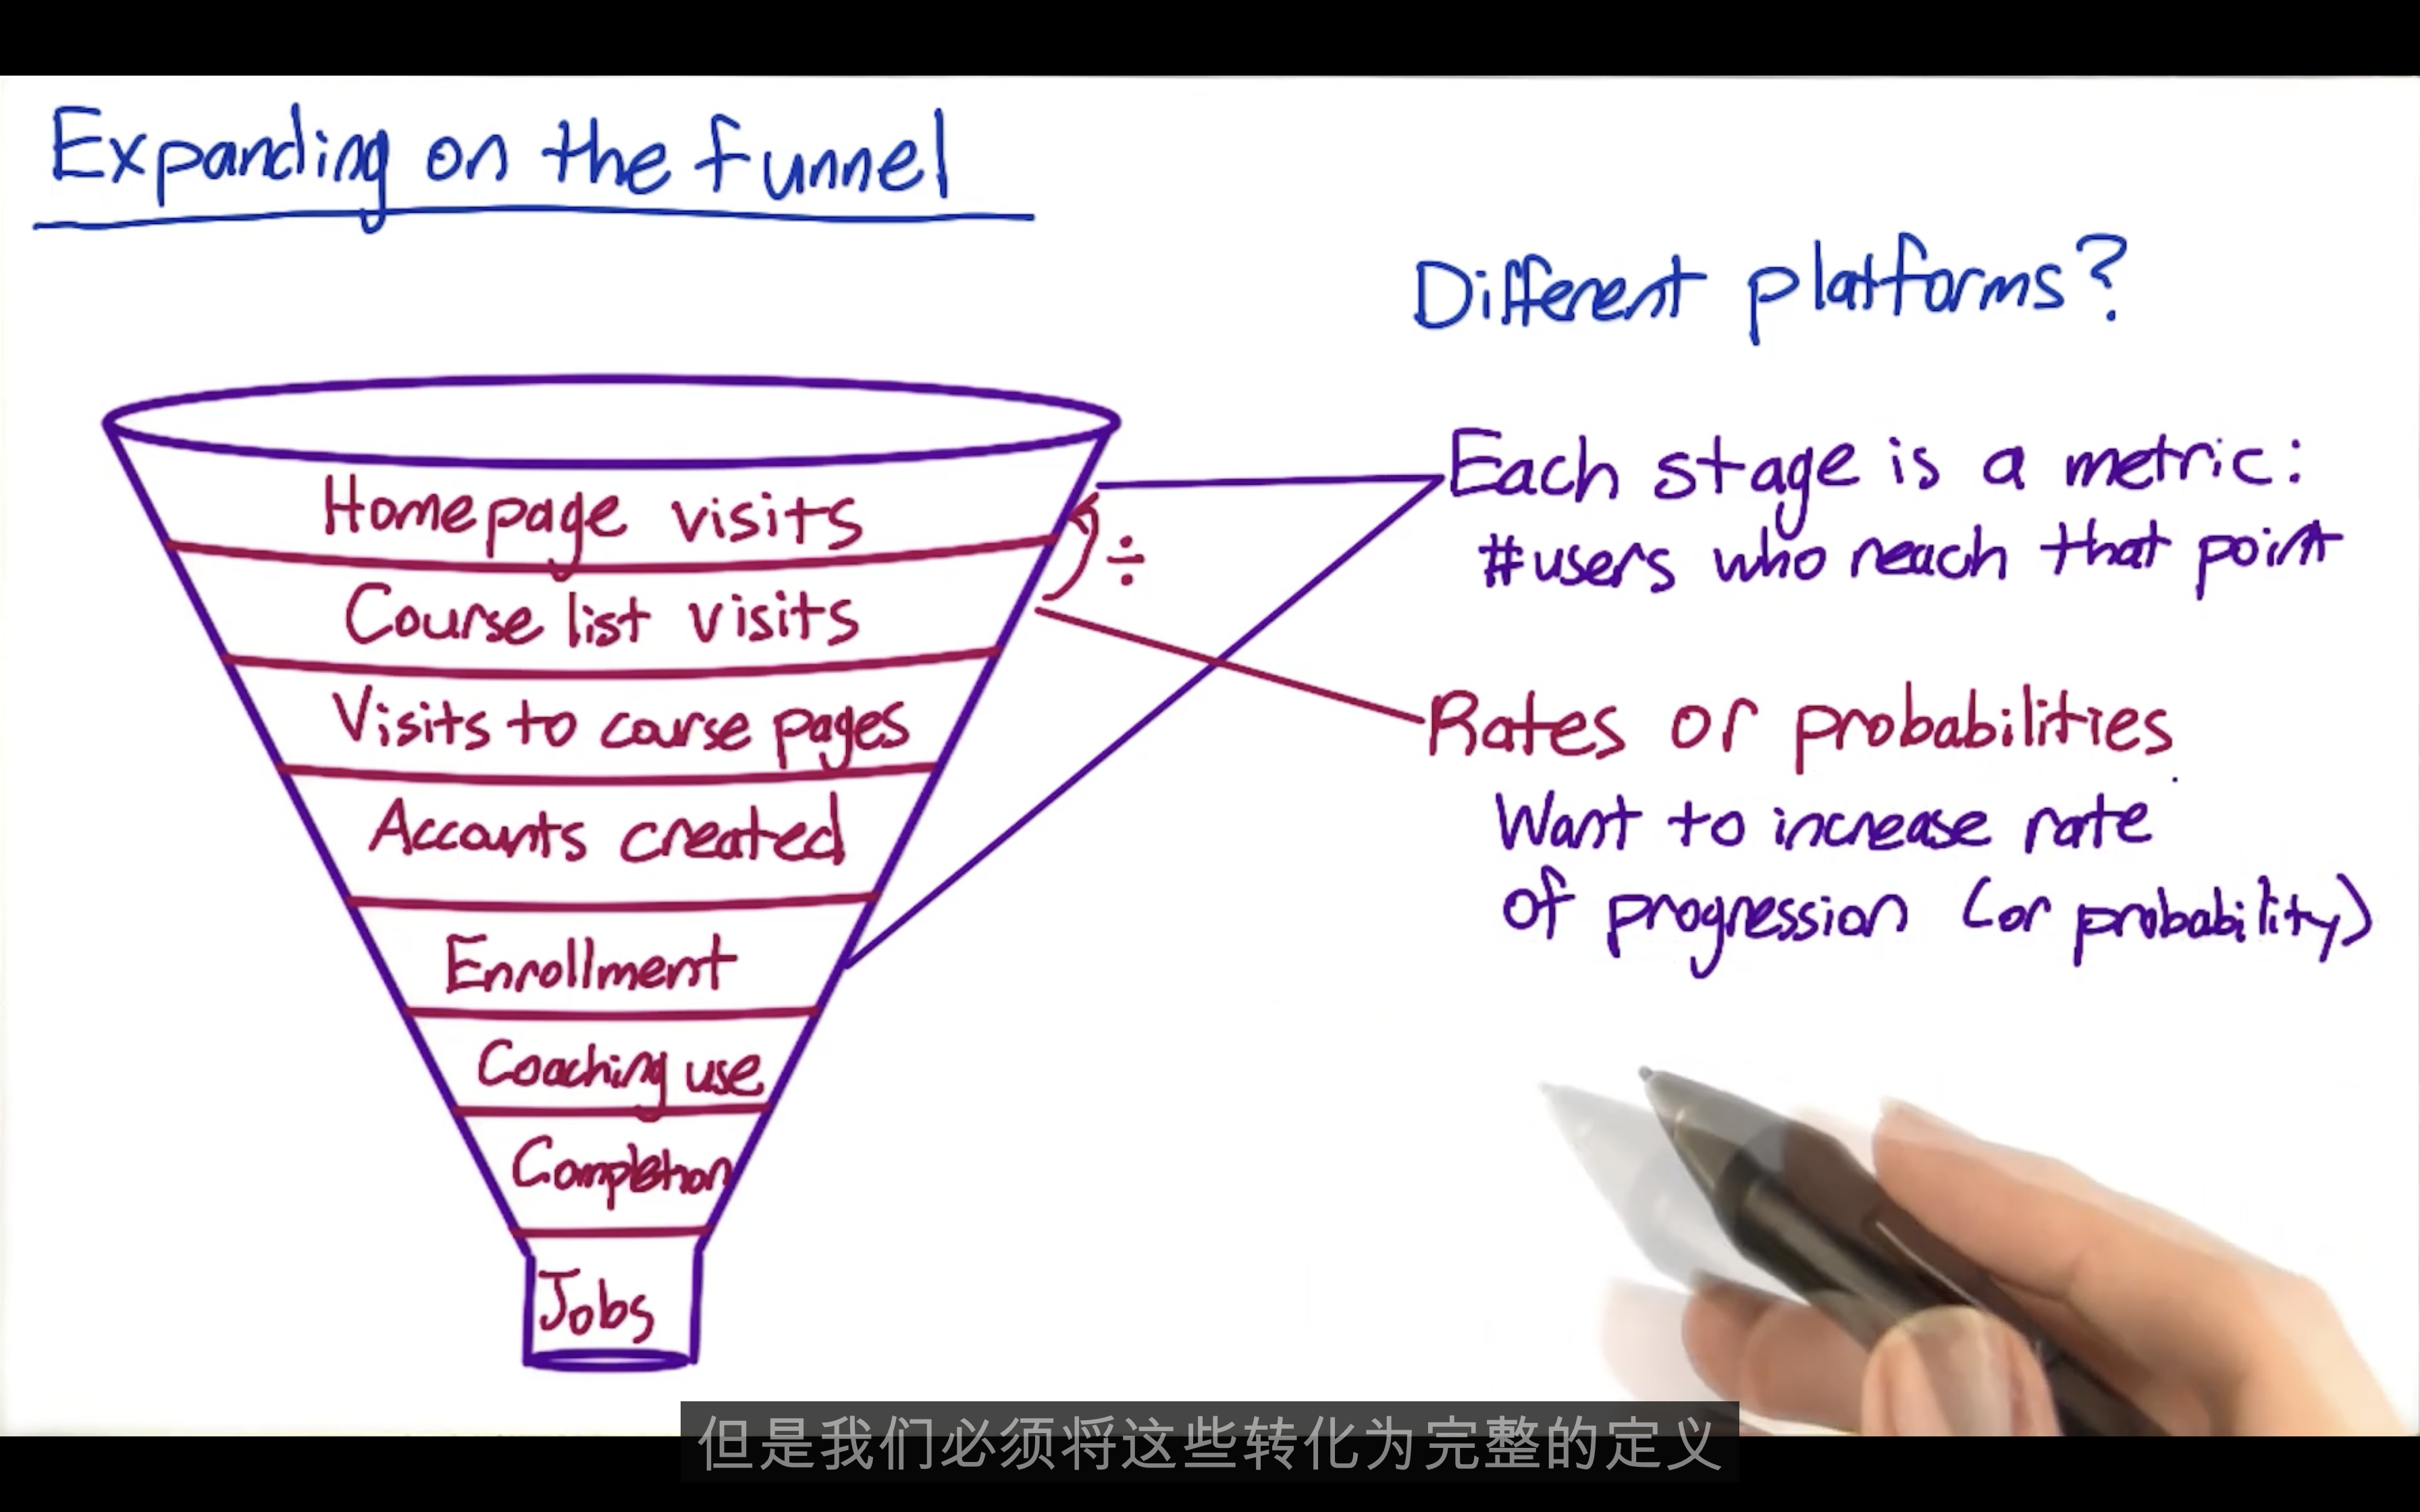 Expanding on the funnel
Different platforms?
Homepage visits
Course list visits
Visits to course pages
Accounts created
Enrollment
Coaching use
Completion
Jobs
÷
Each stage is a metric:
#users who reach that point
Rates or probabilities
Want to increase rate
of progression (or probability)
但是我们必须将这些转化为完整的定义